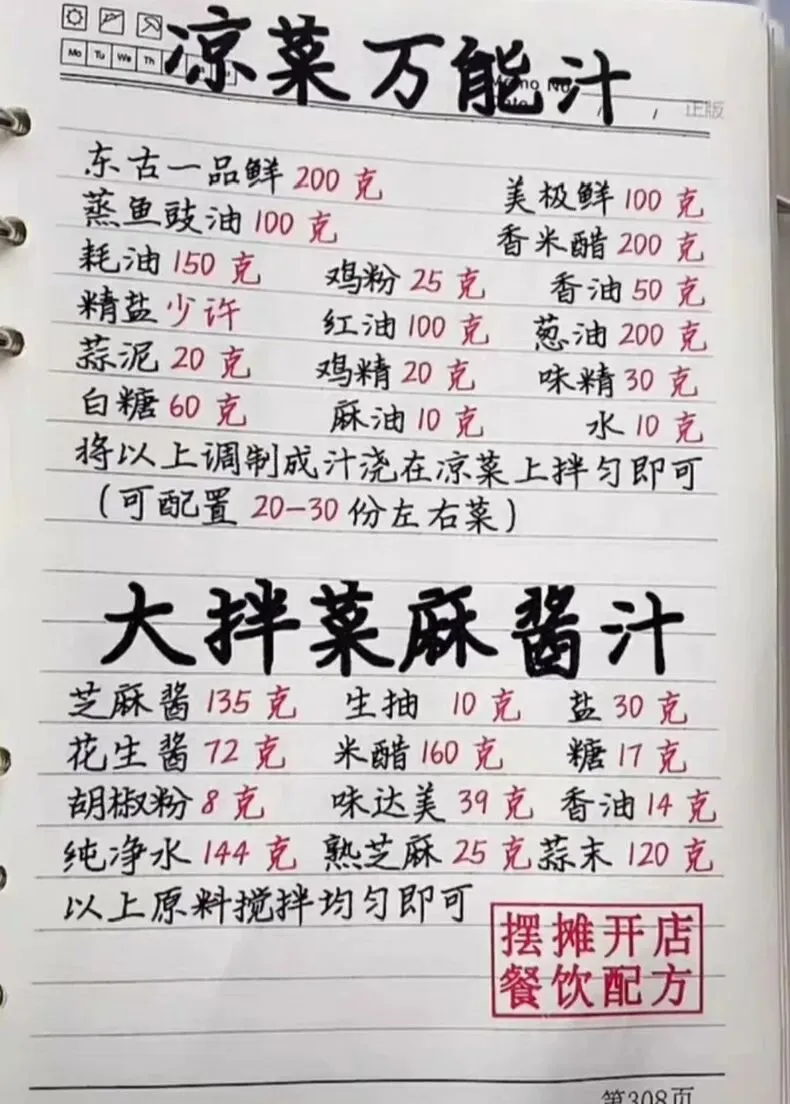 凉菜万能汁
Mo Tu We Th
Memo No.
正版
东古一品鲜 200 克 美极鲜 100 克
蒸鱼豉油 100 克 香米醋 200 克
耗油 150 克 鸡粉 25 克 香油 50 克
精盐少许 红油 100 克 葱油 200 克
蒜泥 20 克 鸡精 20 克 味精 30 克
白糖 60 克 麻油 10 克 水 10 克
将以上调制成汁浇在凉菜上拌匀即可
（可配置 20-30 份左右菜）
大拌菜麻酱汁
芝麻酱 135 克 生抽 10 克 盐 30 克
花生酱 72 克 米醋 160 克 糖 17 克
胡椒粉 8 克 味达美 39 克 香油 14 克
纯净水 144 克 熟芝麻 25 克 蒜末 120 克
以上原料搅拌均匀即可
摆摊开店
餐饮配方
第308页